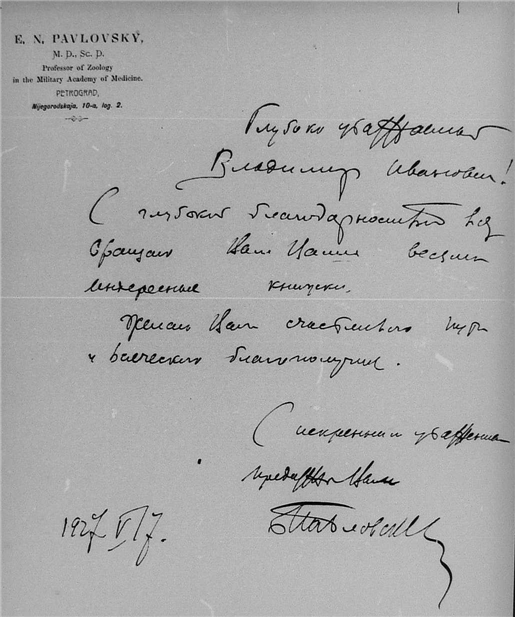 E. N. PAVLOVSKY,
M. D., Sc. D.
Professor of Zoology
in the Military Academy of Medicine.
PETROGRAD,
Nijegorodskaja, 10-a, log. 2.
Глубоко уважаемый
Владимир Иванович!
С глубокой благодарностью воз
вращаю Вам Ваши весьма
интересные книжки.
Желаю Вам счастливого пути
и всяческого благополучия.
С искренним уважением
преданный Вам
Е Павловский
1927 VI 7.